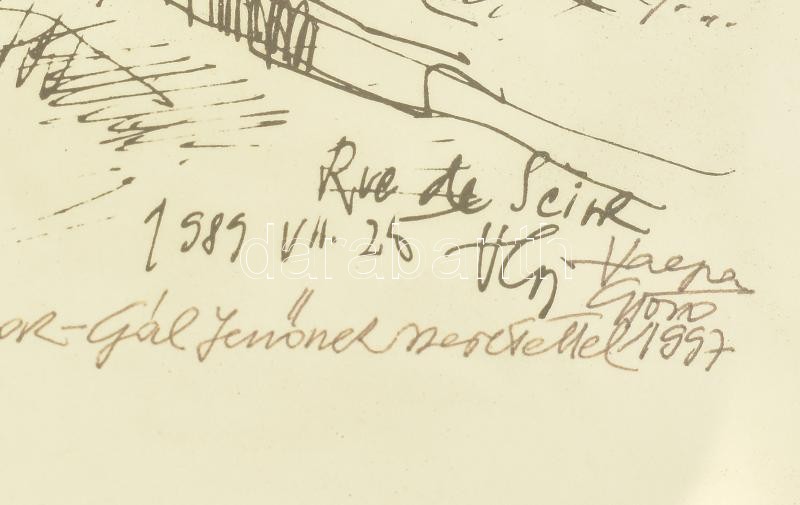 Rue de Seine
1989 VII. 25
Gál Jenőnek szeretettel 1997
darabanth